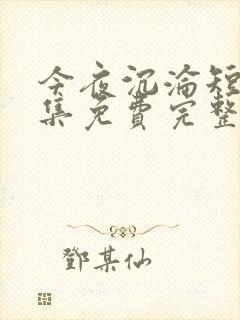 今夜沉淪短
集免費完整
鄧某仙